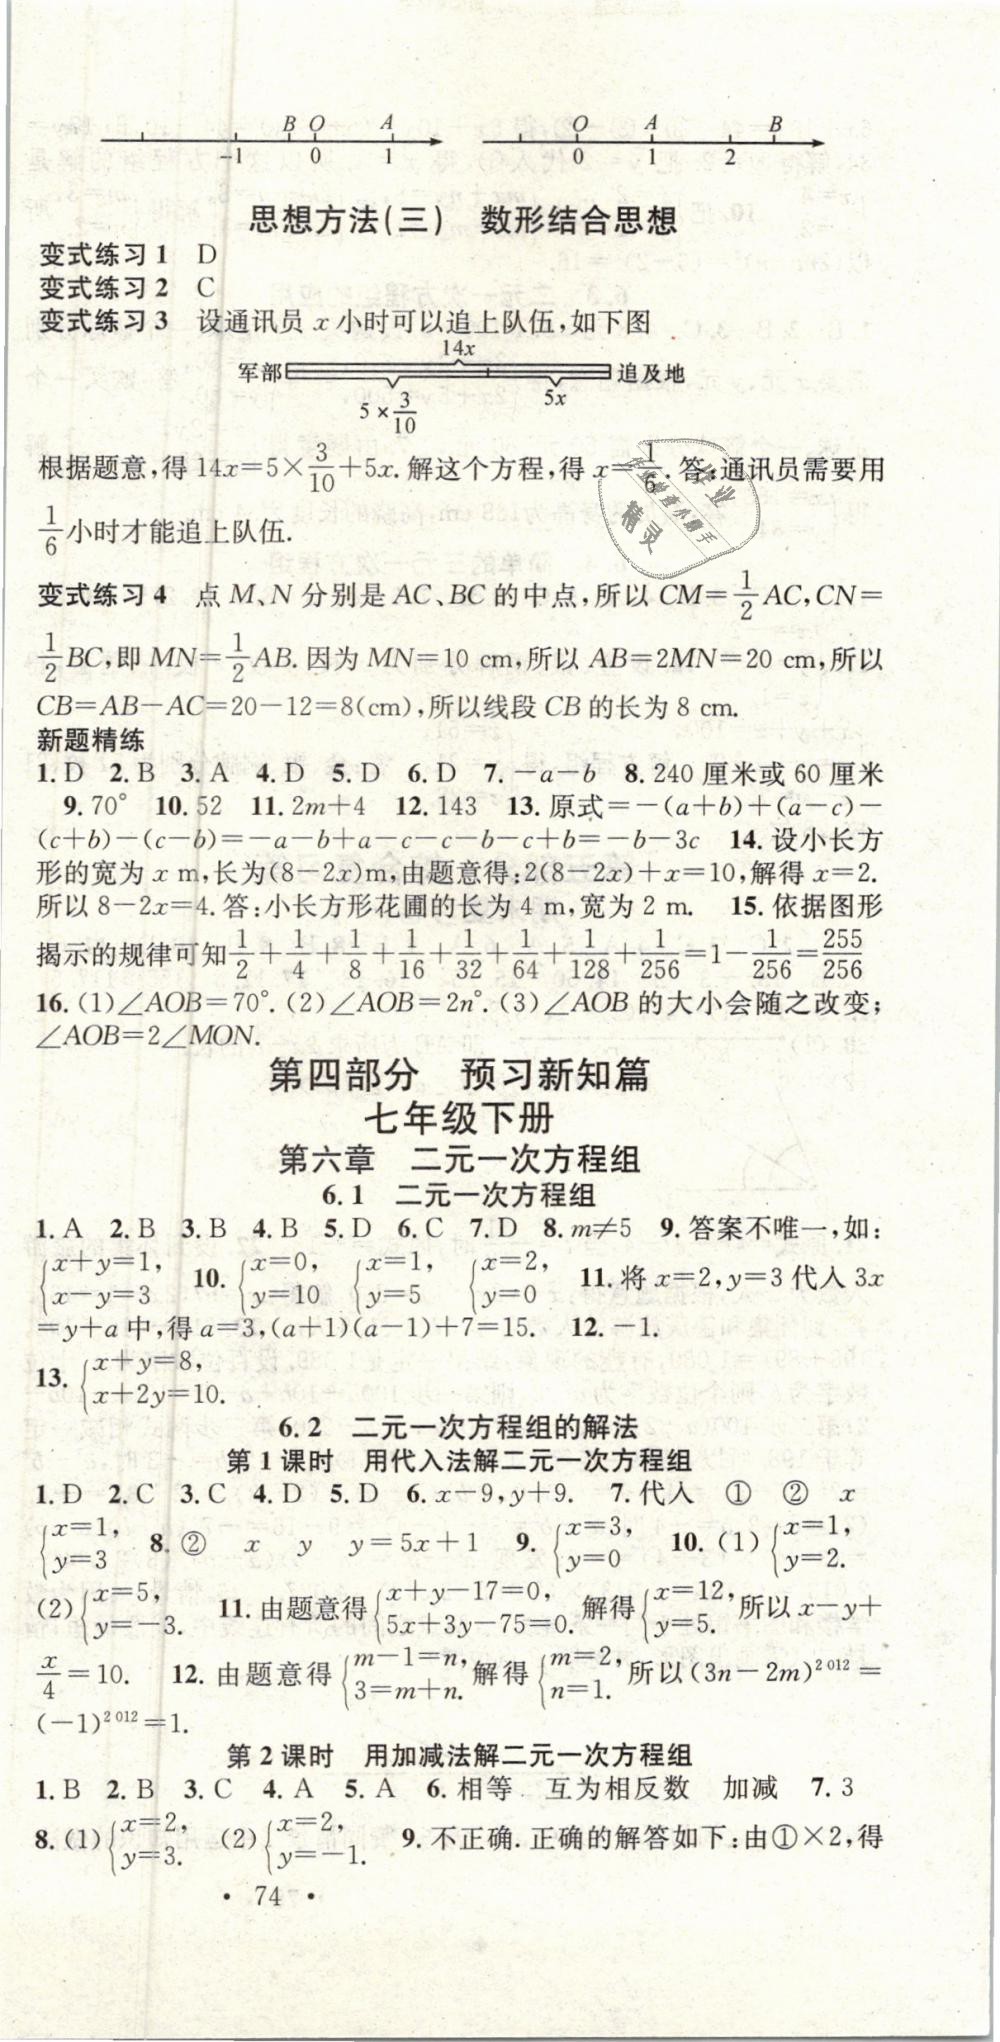 B O A
-1 0 1
O A B
0 1 2
思想方法(三) 数形结合思想
变式练习1 D
变式练习2 C
变式练习3 设通讯员 x 小时可以追上队伍,如下图
14x
军部 追及地
5×3/10 5x
根据题意,得 14x=5×3/10+5x.解这个方程,得 x=1/6.答:通讯员需要用
1/6小时才能追上队伍.
变式练习4 点 M、N 分别是 AC、BC 的中点,所以 CM=1/2 AC,CN=
1/2 BC,即 MN=1/2 AB.因为 MN=10 cm,所以 AB=2MN=20 cm,所以
CB=AB-AC=20-12=8(cm),所以线段 CB 的长为 8 cm.
新题精练
1.D 2.B 3.A 4.D 5.D 6.D 7.-a-b 8.240 厘米或 60 厘米
9.70° 10.52 11.2m+4 12.143 13.原式=-(a+b)+(a-c)-
(c+b)-(c-b)=-a-b+a-c-c-b-c+b=-b-3c 14.设小长方
形的宽为 x m,长为(8-2x)m,由题意得:2(8-2x)+x=10,解得 x=2.
所以 8-2x=4.答:小长方形花圃的长为 4 m,宽为 2 m. 15.依据图形
揭示的规律可知1/2+1/4+1/8+1/16+1/32+1/64+1/128+1/256=1-1/256=255/256
16.(1)∠AOB=70°.(2)∠AOB=2n°.(3)∠AOB 的大小会随之改变;
∠AOB=2∠MON.
第四部分 预习新知篇
七年级下册
第六章 二元一次方程组
6.1 二元一次方程组
1.A 2.B 3.B 4.B 5.D 6.C 7.D 8.m≠5 9.答案不唯一,如:
{x+y=1, x-y=3 10.{x=0, y=10 {x=1, y=5 {x=2, y=0 11.将 x=2,y=3 代入 3x
=y+a 中,得 a=3,(a+1)(a-1)+7=15. 12.-1.
13.{x+y=8, x+2y=10.
6.2 二元一次方程组的解法
第1课时 用代入法解二元一次方程组
1.D 2.C 3.C 4.D 5.D 6.x-9,y+9. 7.代入 ① ② x
{x=1, y=3 8.② x y y=5x+1 9.{x=3, y=0 10.(1){x=1, y=2.
(2){x=5, y=-3. 11.由题意得{x+y-17=0, 5x+3y-75=0.解得{x=12, y=5.所以 x-y+
x/4=10. 12.由题意得{m-1=n, 3=m+n.解得{m=2, n=1.所以(3n-2m)²⁰¹²=
(-1)²⁰¹²=1.
第2课时 用加减法解二元一次方程组
1.B 2.B 3.C 4.A 5.A 6.相等 互为相反数 加减 7.3
8.(1){x=2, y=3. (2){x=2, y=-1. 9.不正确.正确的解答如下:由①×2,得
· 74 ·